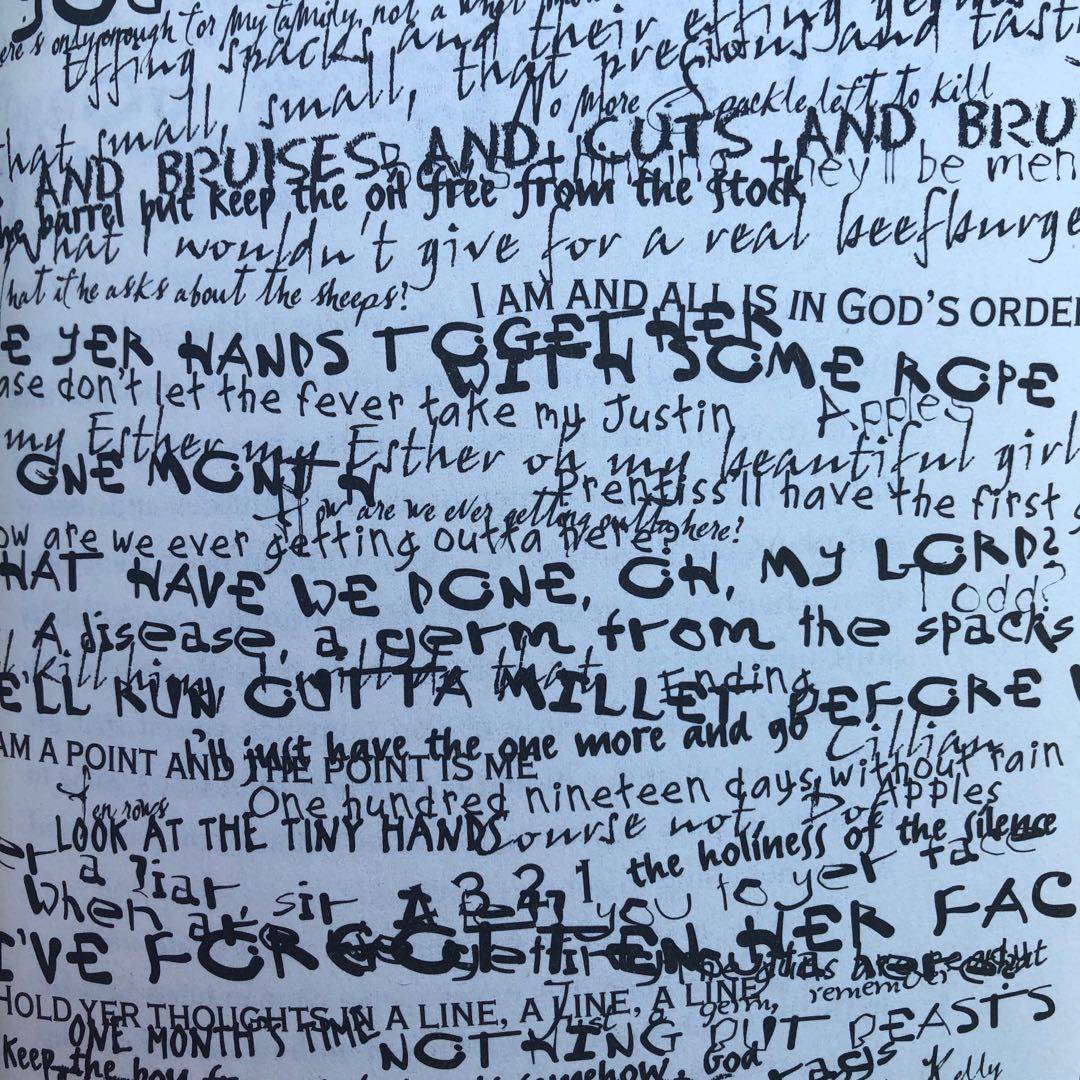 for my family, not a
effing spacks and their effing
small, small, that precious and
No more Spackle left to kill
that small,
AND BRUISES AND CUTS AND BRU
they'll be men
barrel but keep the oil free from the stock
What I wouldn't give for a real beefburge
hat if he asks about the sheeps?
I AM AND ALL IS IN GOD'S ORDE
E YER HANDS TOGETHER
WITH SOME ROPE
ase don't let the fever take my Justin
Apples
my Esther my Esther oh my beautiful girl
ONE MONTH
Prentiss'll have the first
How are we ever getting outta here?
ow are we ever getting outta here?
HAT HAVE WE DONE, OH, MY LORD?
odd?
A disease, a germ from the spacks
kill him,
Ending
E'LL RUN OUTTA MILLET BEFORE
I'll just have the one more and go
Cillian
AM A POINT AND THE POINT IS ME
Ten rows
One hundred nineteen days without rain
Apples
LOOK AT THE TINY HANDS
Course not
the holiness of the silence
a liar, sir
3 2 1
you to yer face
When are
I'VE FORGOTTEN HER FAC
HOLD YER THOUGHTS IN A LINE, A LINE, A LINE
germ,
remember
Just
ONE MONTH'S TIME
NOTHING BUT BEASTS
Keep the boy
somehow, God
Kelly